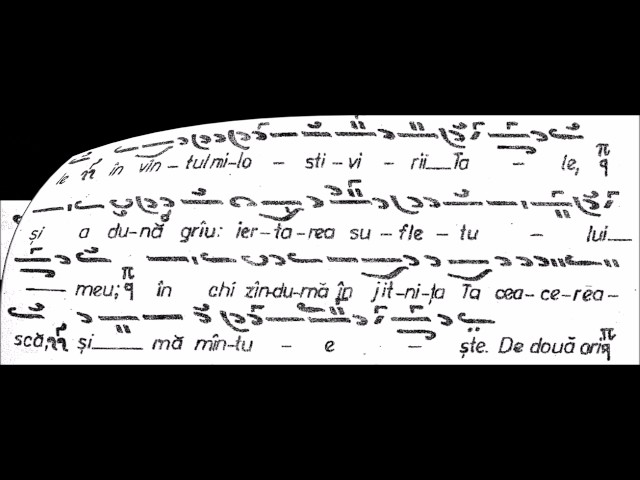 le în vîn-tul mi-lo - sti-vi - rii__Ta - le,
și a du-nă grîu: ier-ta-rea su-fle-tu - lui__
___ meu; în chi zîn-du-mă în jit-ni-ța Ta cea-ce-rea-
scă, și____ mă mîn-tu - e - ște. De două ori